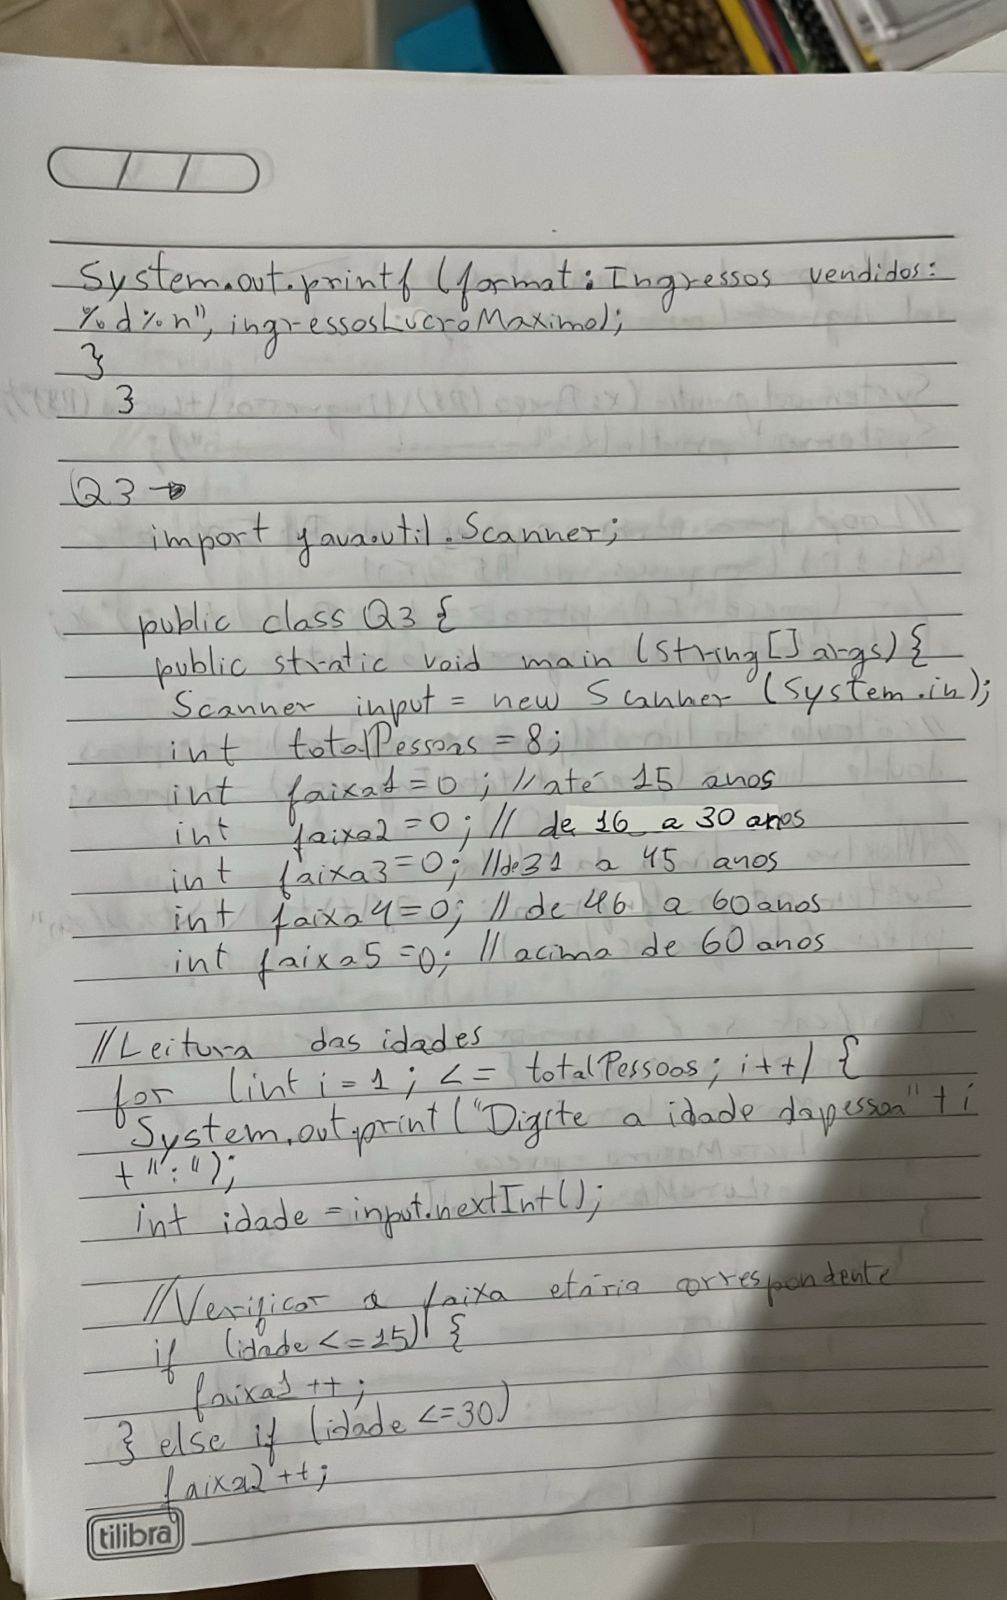 System.out.printf (format: Ingressos vendidos:
%d%n", ingressosLucroMaximo);
}
}
Q3 →
import java.util.Scanner;
public class Q3 {
public static void main (String[] args) {
Scanner input = new Scanner (System.in);
int totalPessoas = 8;
int faixa1 = 0; // até 15 anos
int faixa2 = 0; // de 16 a 30 anos
int faixa3 = 0; // de 31 a 45 anos
int faixa4 = 0; // de 46 a 60 anos
int faixa5 = 0; // acima de 60 anos
//Leitura das idades
for (int i = 1; <= totalPessoas; i++) {
System.out.print ("Digite a idade da pessoa" + i
+ ":");
int idade = input.nextInt();
//Verificar a faixa etária correspondente
if (idade <= 15) {
faixa1 ++;
} else if (idade <= 30)
faixa2 ++;
tilibra